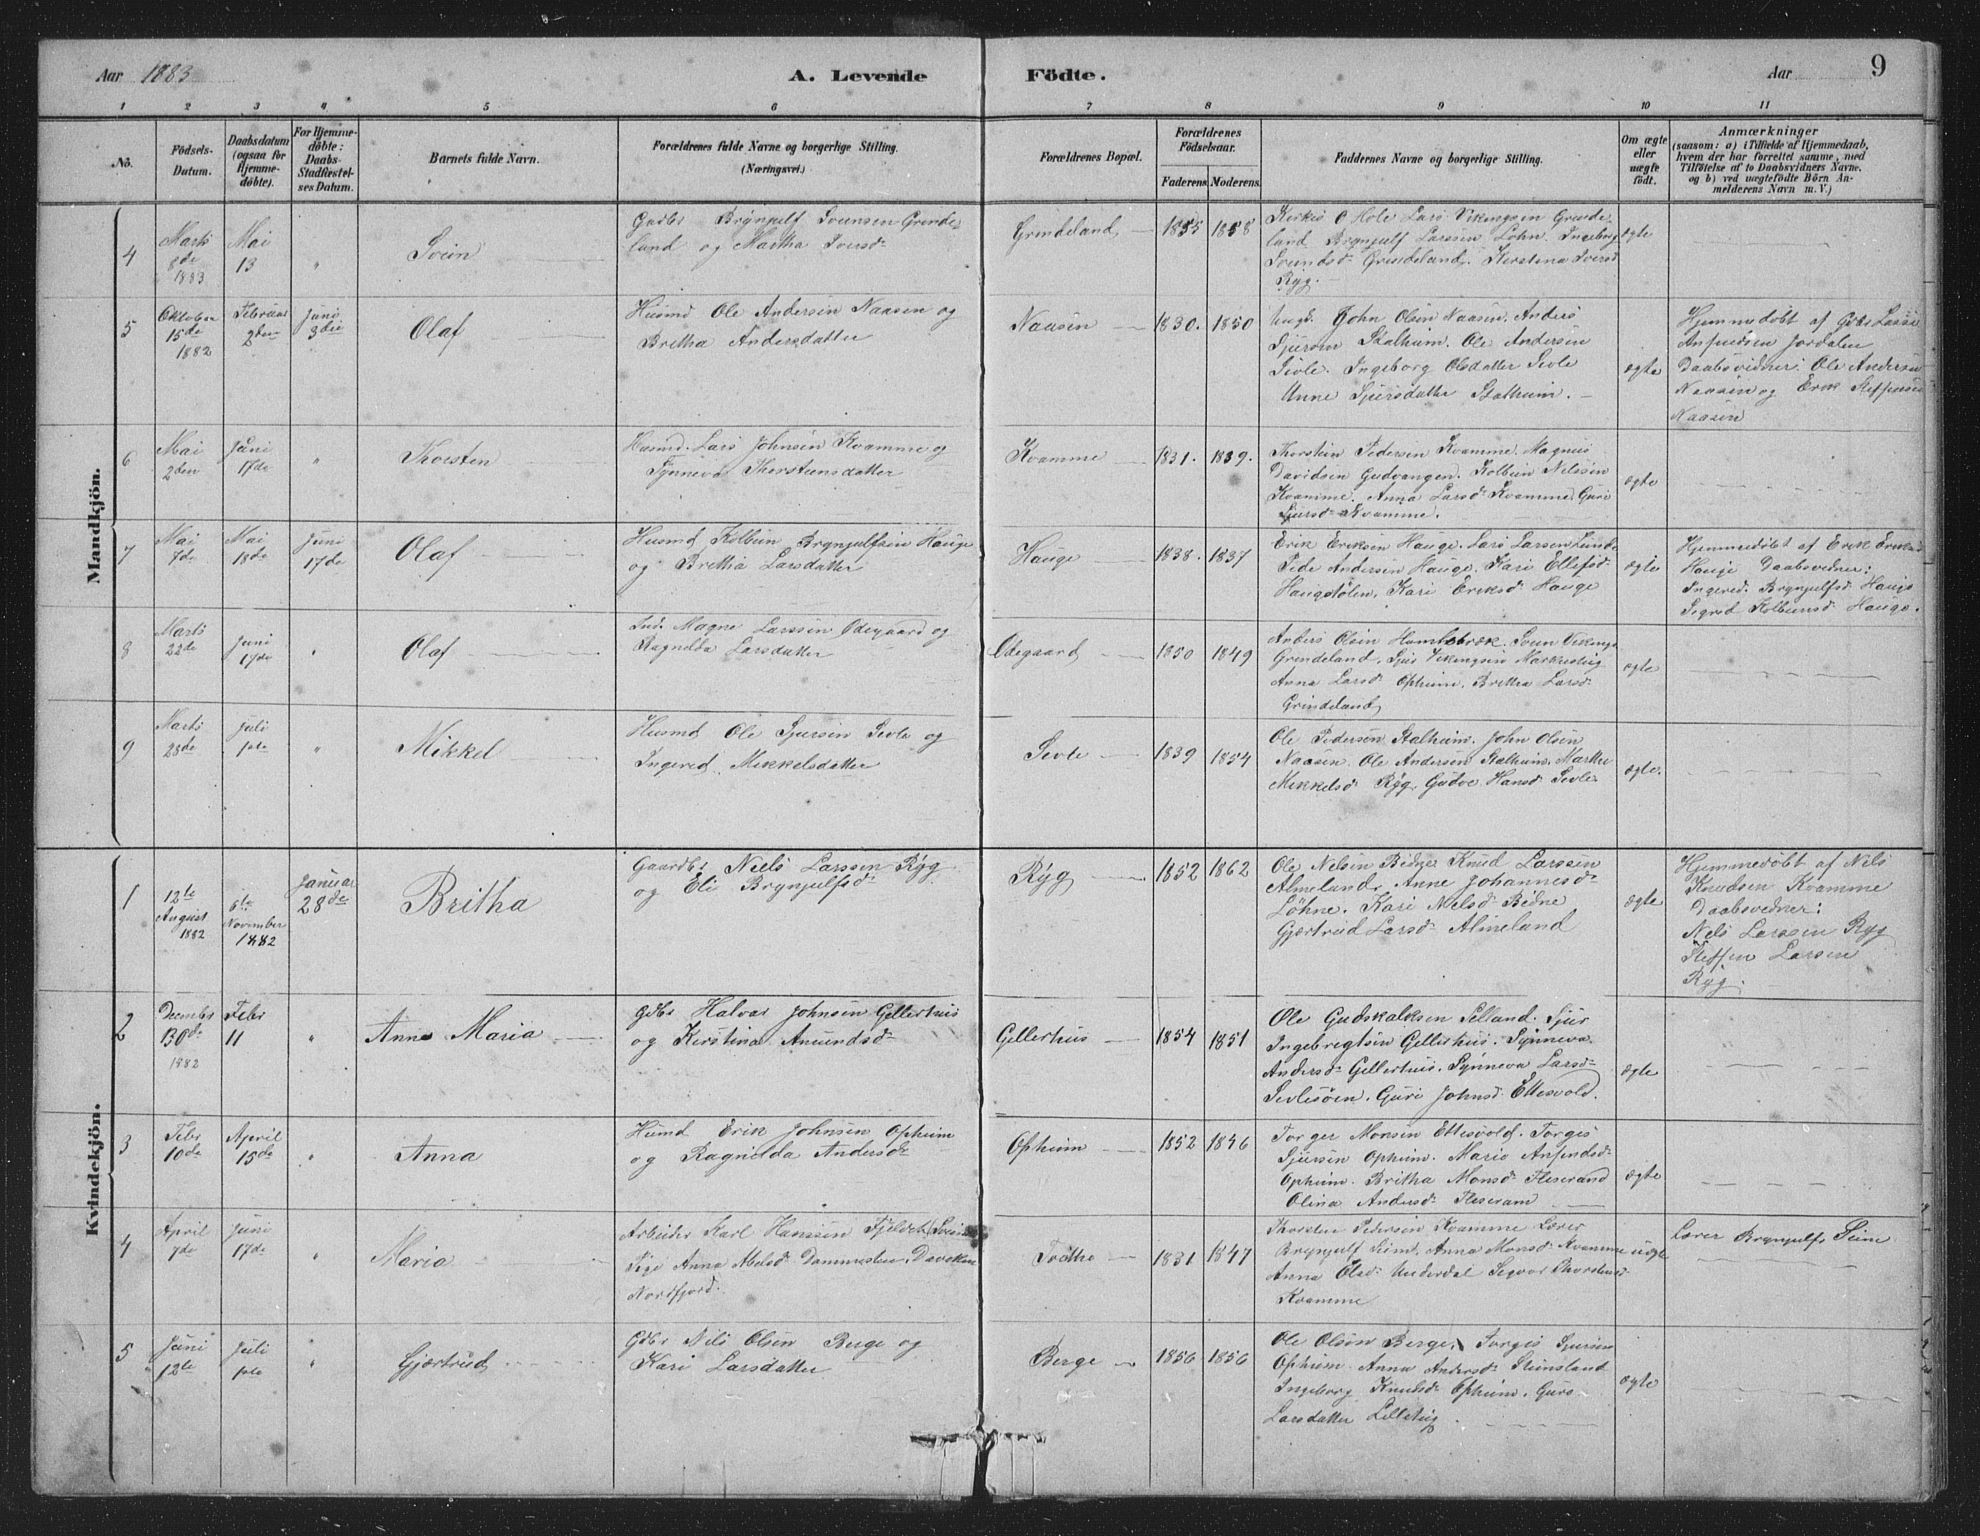 Aar 1883
A. Levende Födte.
Aar
9
1 2 3 4 5 6 7 8 9 10 11
No.
Födsels-
Datum.
Daabsdatum
(ogsaa for
Hjemme-
döbte).
For Hjemme-
döbte:
Daabs-
Stadfæstel-
ses Datum.
Barnets fulde Navn.
Forældrenes fulde Navne og borgerlige Stilling.
(Næringsvei.)
Forældrenes Bopæl.
Forældrenes
Födselsaar.
Faderens. Moderens.
Faddernes Navne og borgerlige Stilling.
Om ægte
eller
uægte
födt.
Anmærkninger
(saasom: a) i Tilfælde af Hjemmedaab,
hvem der har forrettet samme, med
Tilföielse af to Daabsvidners Navne,
og b) ved uægtefödte Börn An-
melderens Navn m. V.)
Mandkjön.
4
Marts
8de
1883
Mai
13
"
Svein
Gaardbr Brynjulf Sveinsen Grinde-
land og Martha Iversd
Grindeland
1855 1858
Lars Vikingsen Grinde-
land Brynjulf Larssen Løhn. Ingeborg
Sveinsd Grindeland. Kirstina Iversd
Ryg.
ægte
5
Oktober
15de
1882
Februar
2den
Juni
3die
Olaf
Husmd Ole Andersen Naasen og
Britha Andersdatter
Naasen
1830. 1850
Ungk. John Olsen Naasen. Anders
Sjursen Stalheim. Ole Andersen
Sivle. Ingeborg Olsdatter Sivle
Anne Sjursdatter Stalheim.
ægte
Hjemmedøbt af Gbr Lasse
Anfindsen Jordalen
Daabsvidner: Ole Andersen
Naasen og Erik Steffensen
Naasen
6
Mai
2den
Juni
17de
"
Thorsten
Husmd. Lars Johnsen Kvamme og
Synneva Thorsteinsdatter
Kvamme
1831. 1839.
Thorstein Pedersen Kvamme. Magnus
Davidsen Gudvangen. Kolbein Nilssen
Kvamme. Anna Larsd Kvamme. Guri
Sjursd Kvamme.
ægte
7
Mai
7de
Mai
18de
Juni
17de
Olaf
Husmd Kolbein Brynjulfsen Hauge
og Britha Larsdatter
Hauge
1838. 1837
Erik Eriksen Hauge. Lars Larsen Linde
Peder Andersen Hauge. Kari Ellefsd
Haugstølen. Kari Eriksd Hauge
ægte
Hjemmedøbt af Erik Eriksen
Hauge Daabsvidner:
Ingered Brynjulfsd Hauge
Sigrid Kolbeinsd Hauge.
8
Marts
22de
Juni
17de
"
Olaf
Ind. Magne Larssen Ødegaard og
Ragnilda Larsdatter
Ødegaard
1850 1849
Anders Olsen Humlebrek. Svein Vikings
Grindeland. Sjur Vikingsen Markestig
Anna Larsd Opheim. Britha Larsd
Grindeland
ægte
9
Marts
28de
Juli
1ste
"
Mikkel
Husmd Ole Sjursen Sivle og
Ingered Mikkelsdatter
Sivle
1839 1854
Ole Pedersen Stalheim. John Olsen
Naasen. Ole Andersen Stalheim. Martha
Mikkelsd Ryg. Gudve Hansd Sivle
ægte.
Kvindekjön.
1
12te
August
1882
6te
November
1882
Januar
28de
Britha
Gaardbr Niels Larssen Ryg
og Eli Brynjulfsd
Ryg
1852 1862
Ole Nelsen Bidne Knud Larssen
Almeland. Anne Johannesd
Löhne. Kari Nelsd Bidne
Gjertrud Larsd Almeland
ægte
Hjemmedøbt af Nils
Knudsen Kvamme
Daabsvidner:
Nels Larssen Ryg
Steffen Larsen
Ryg.
2
Decembr
30de
1882
Febr
11
"
Anna Maria
Gdbr Halvar Johnsen Gellerhus
og Kirstina Amundsd
Gellerhus
1854 1851
Ole Gudskalksen Selland. Sjur
Ingebregtsen Gellerhus. Synneva
Andersd Gellerhus. Synneva Larsd
Sivlesøen. Guri Johnsd Ettesvold.
ægte
3
Febr
10de
April
15de
"
Anna
Husmd Erik Johnsen Opheim
og Ragnilda Andersd
Opheim
1852 1846
Torger Monsen Ettesvold. Torgis
Sjursen Opheim. Marie Anfindsd
Opheim. Britha Monsd
Olina Andersd
ægte
4
April
7de
Juni
17de
"
Maria
Arbeider Karl Hanssen
Pige Anna Abelsd Dammesten, Daviken
Nordfjord.
1831 1847
Thorsten Pedersen Kvamme Lærer
Brynjulf Seim. Anna Monsd Kvamme
Anna Olsd Underdal Thorstensd
Kvamme
uægte
Lærer Brynjulf Seim
5
Juni
12te
Juli
1ste
"
Gjertrud
Gdbr Nils Olsen Berge og
Kari Larsdatter
Berge
1856 1856
Ole Olsen Berge. Torgis Sjursen
Opheim. Anna Andersd
Ingeborg Knudsd Opheim. Guro
Larsdatter Lilletug
ægte